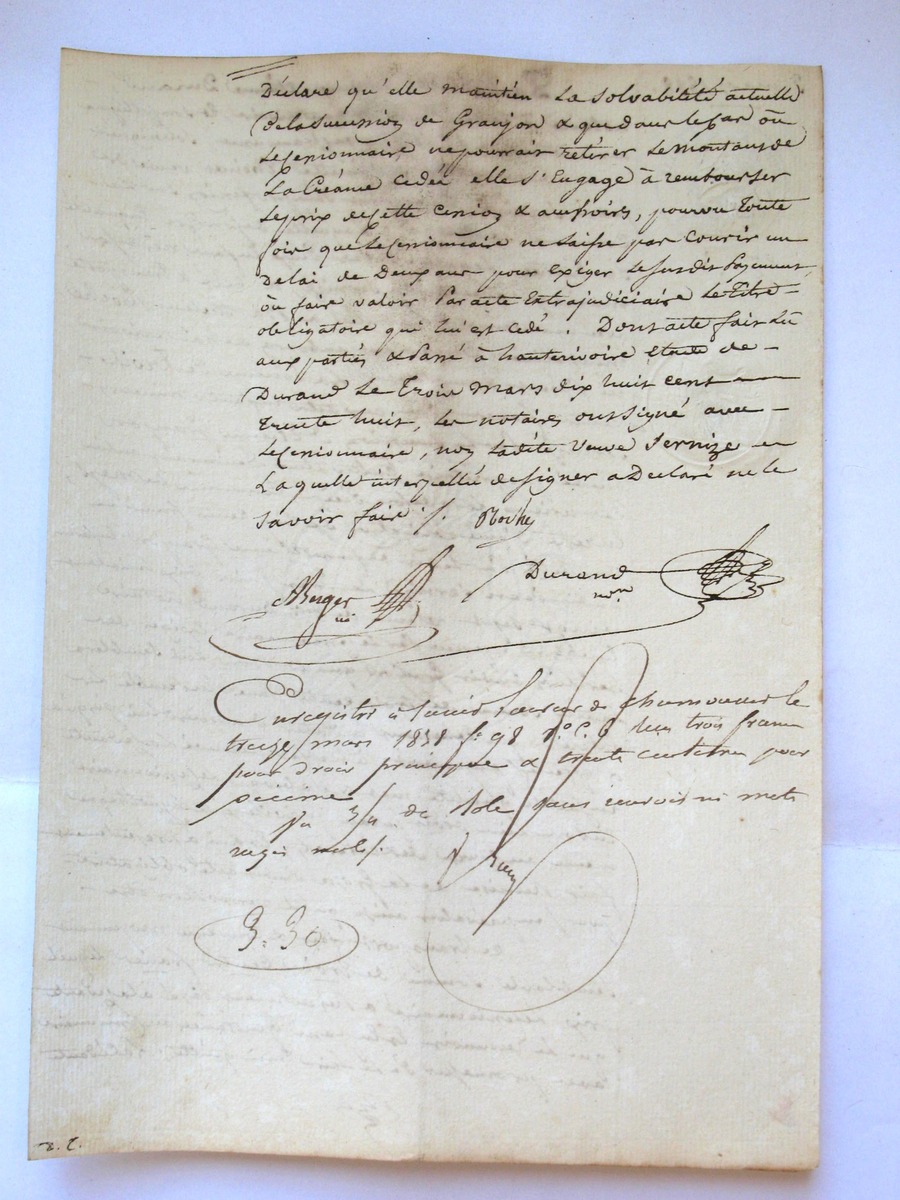 Déclare qu'elle maintien la solvabilité actuelle
de la succession de Granjon & que dans le cas où
le cessionnaire ne pourrait retirer le montant de
la Créance cedée elle s'Engage à rembourser
le prix de cette cession & accessoires, pourvu toute
fois que le cessionnaire ne laisse pas courir un
délai de Deux ans pour exiger le susdit payement,
où faire valoir Par acte Extrajudiciaire le Titre
obligatoire qui lui est cedé. Dont acte fait lû
aux parties & Passé à hauterivoire étude de
Durand le Trois Mars dix huit cent
trente huit, les notaires ont signé avec
le cessionnaire, non ladite Veuve Fernize
laquelle interpellée de signer a Déclaré ne le
savoir faire ./. Roche
Berger
Durand
Enregistré à Saint Laurent de Chamousset le
treize mars 1838 f° 98 r° C. 6 reçu trois francs
pour droit principal & trente centimes pour
décime
rayés nuls
3.30